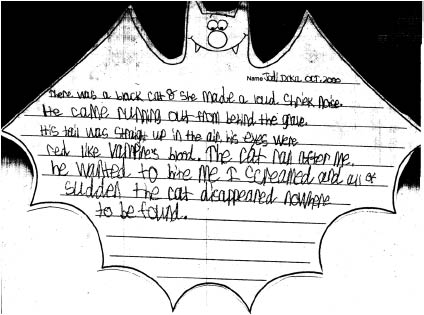 Name Jodi Oct. 2000
There was a black cat & she made a loud. Shriek noise.
He came running out from behind the grave.
His tail was straight up in the air. his eyes were
red like vampires blood. The cat ran after me.
he wanted to bite me I screamed and all of
sudden the cat disappeared nowhere
to be found.